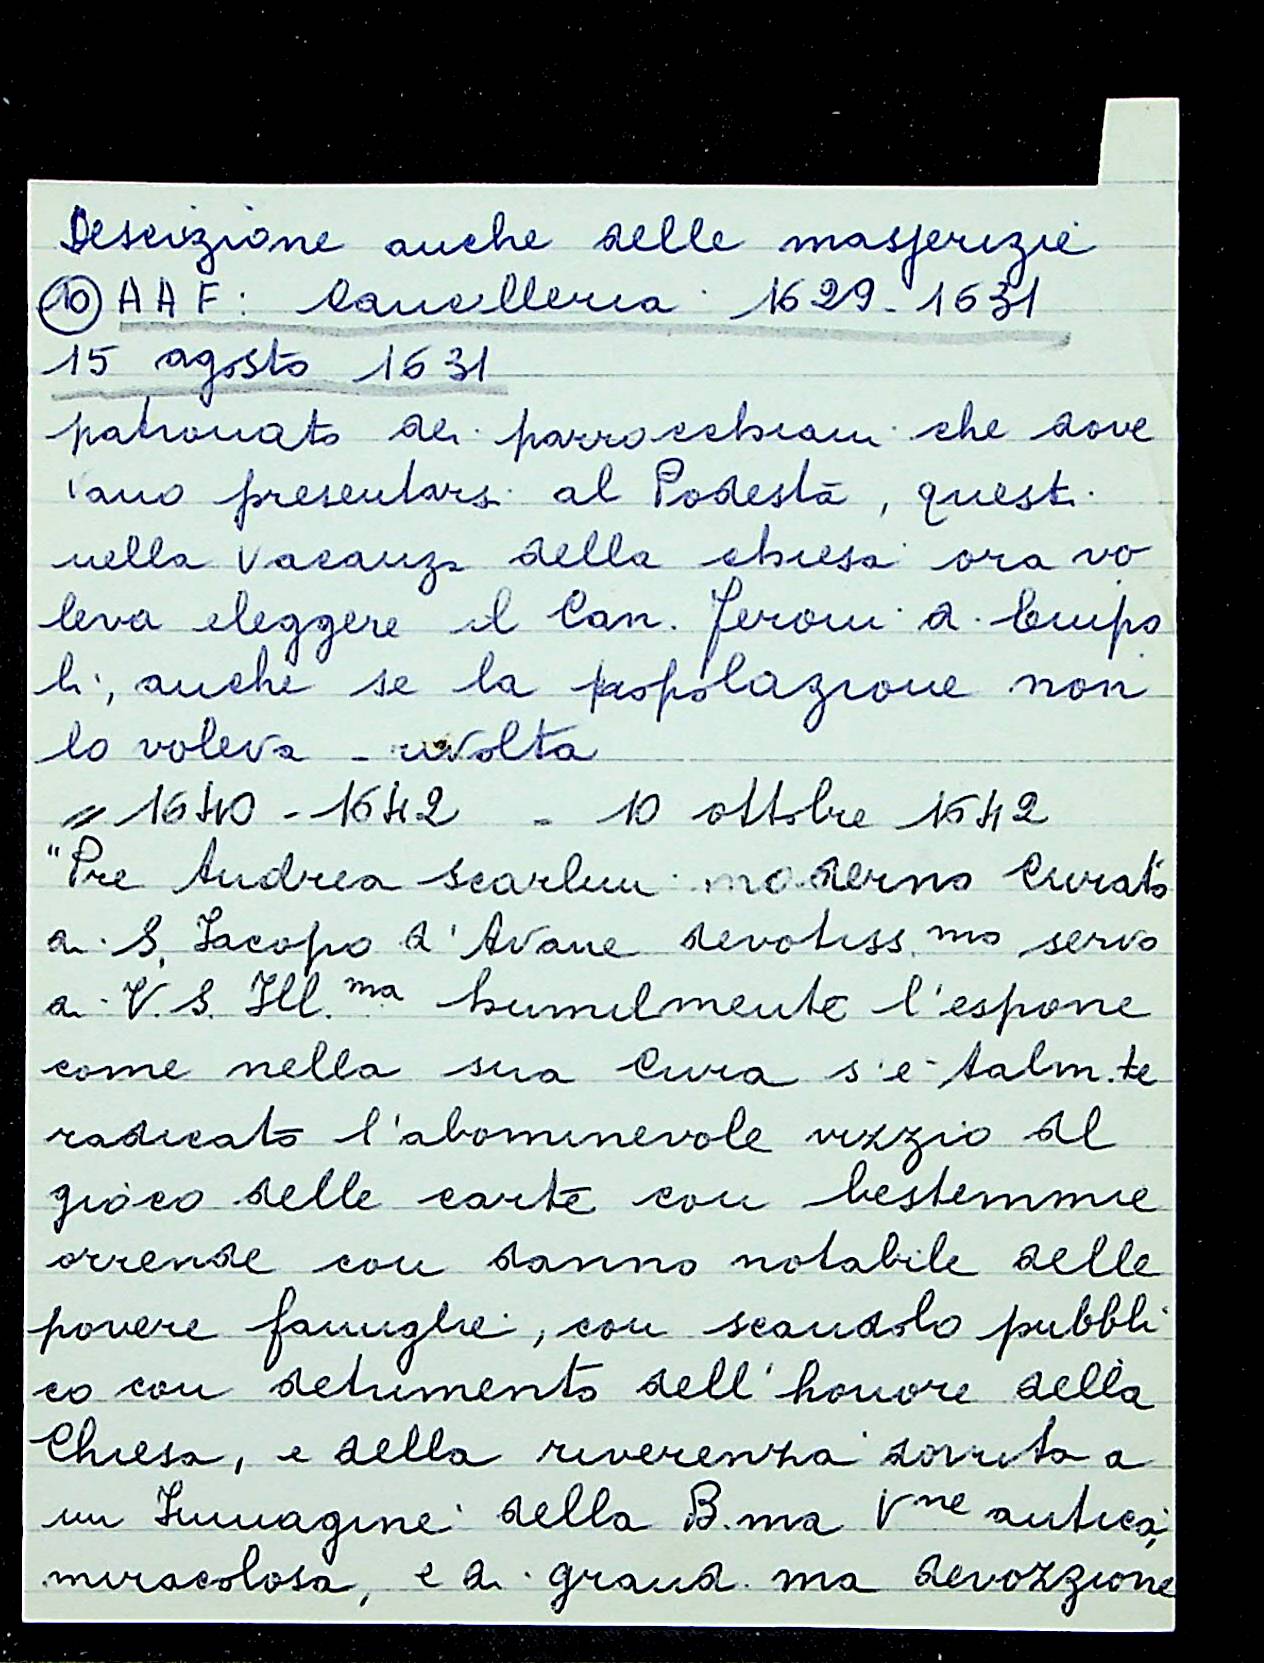 Descrizione anche delle masserizie
10 AAF: Cancelleria 1629-1631
15 agosto 1631
patronato dei parrocchiani che dove
vano presentarsi al Podestà, questi
nella vacanza della chiesa ora vo
leva eleggere il Can. Feroni di Empo
li, anche se la popolazione non
lo voleva - rivolta
" 1640-1642 - 10 ottobre 1642
"Pre Andrea Scarlini moderno Curato
di S. Iacopo d'Avane devotiss.mo servo
di V.S. Ill.ma humilmente l'espone
come nella sua Cura s'è talm.te
radicato l'abominevole vizzio del
gioco delle carte con bestemmie
orrende con danno notabile delle
povere famiglie, con scandolo pubbli
co con detrimento dell'honore della
Chiesa, e della riverenza dovuta a
un Immagine della B.ma Vne antica,
miracolosa, e di grand.ma devozzione